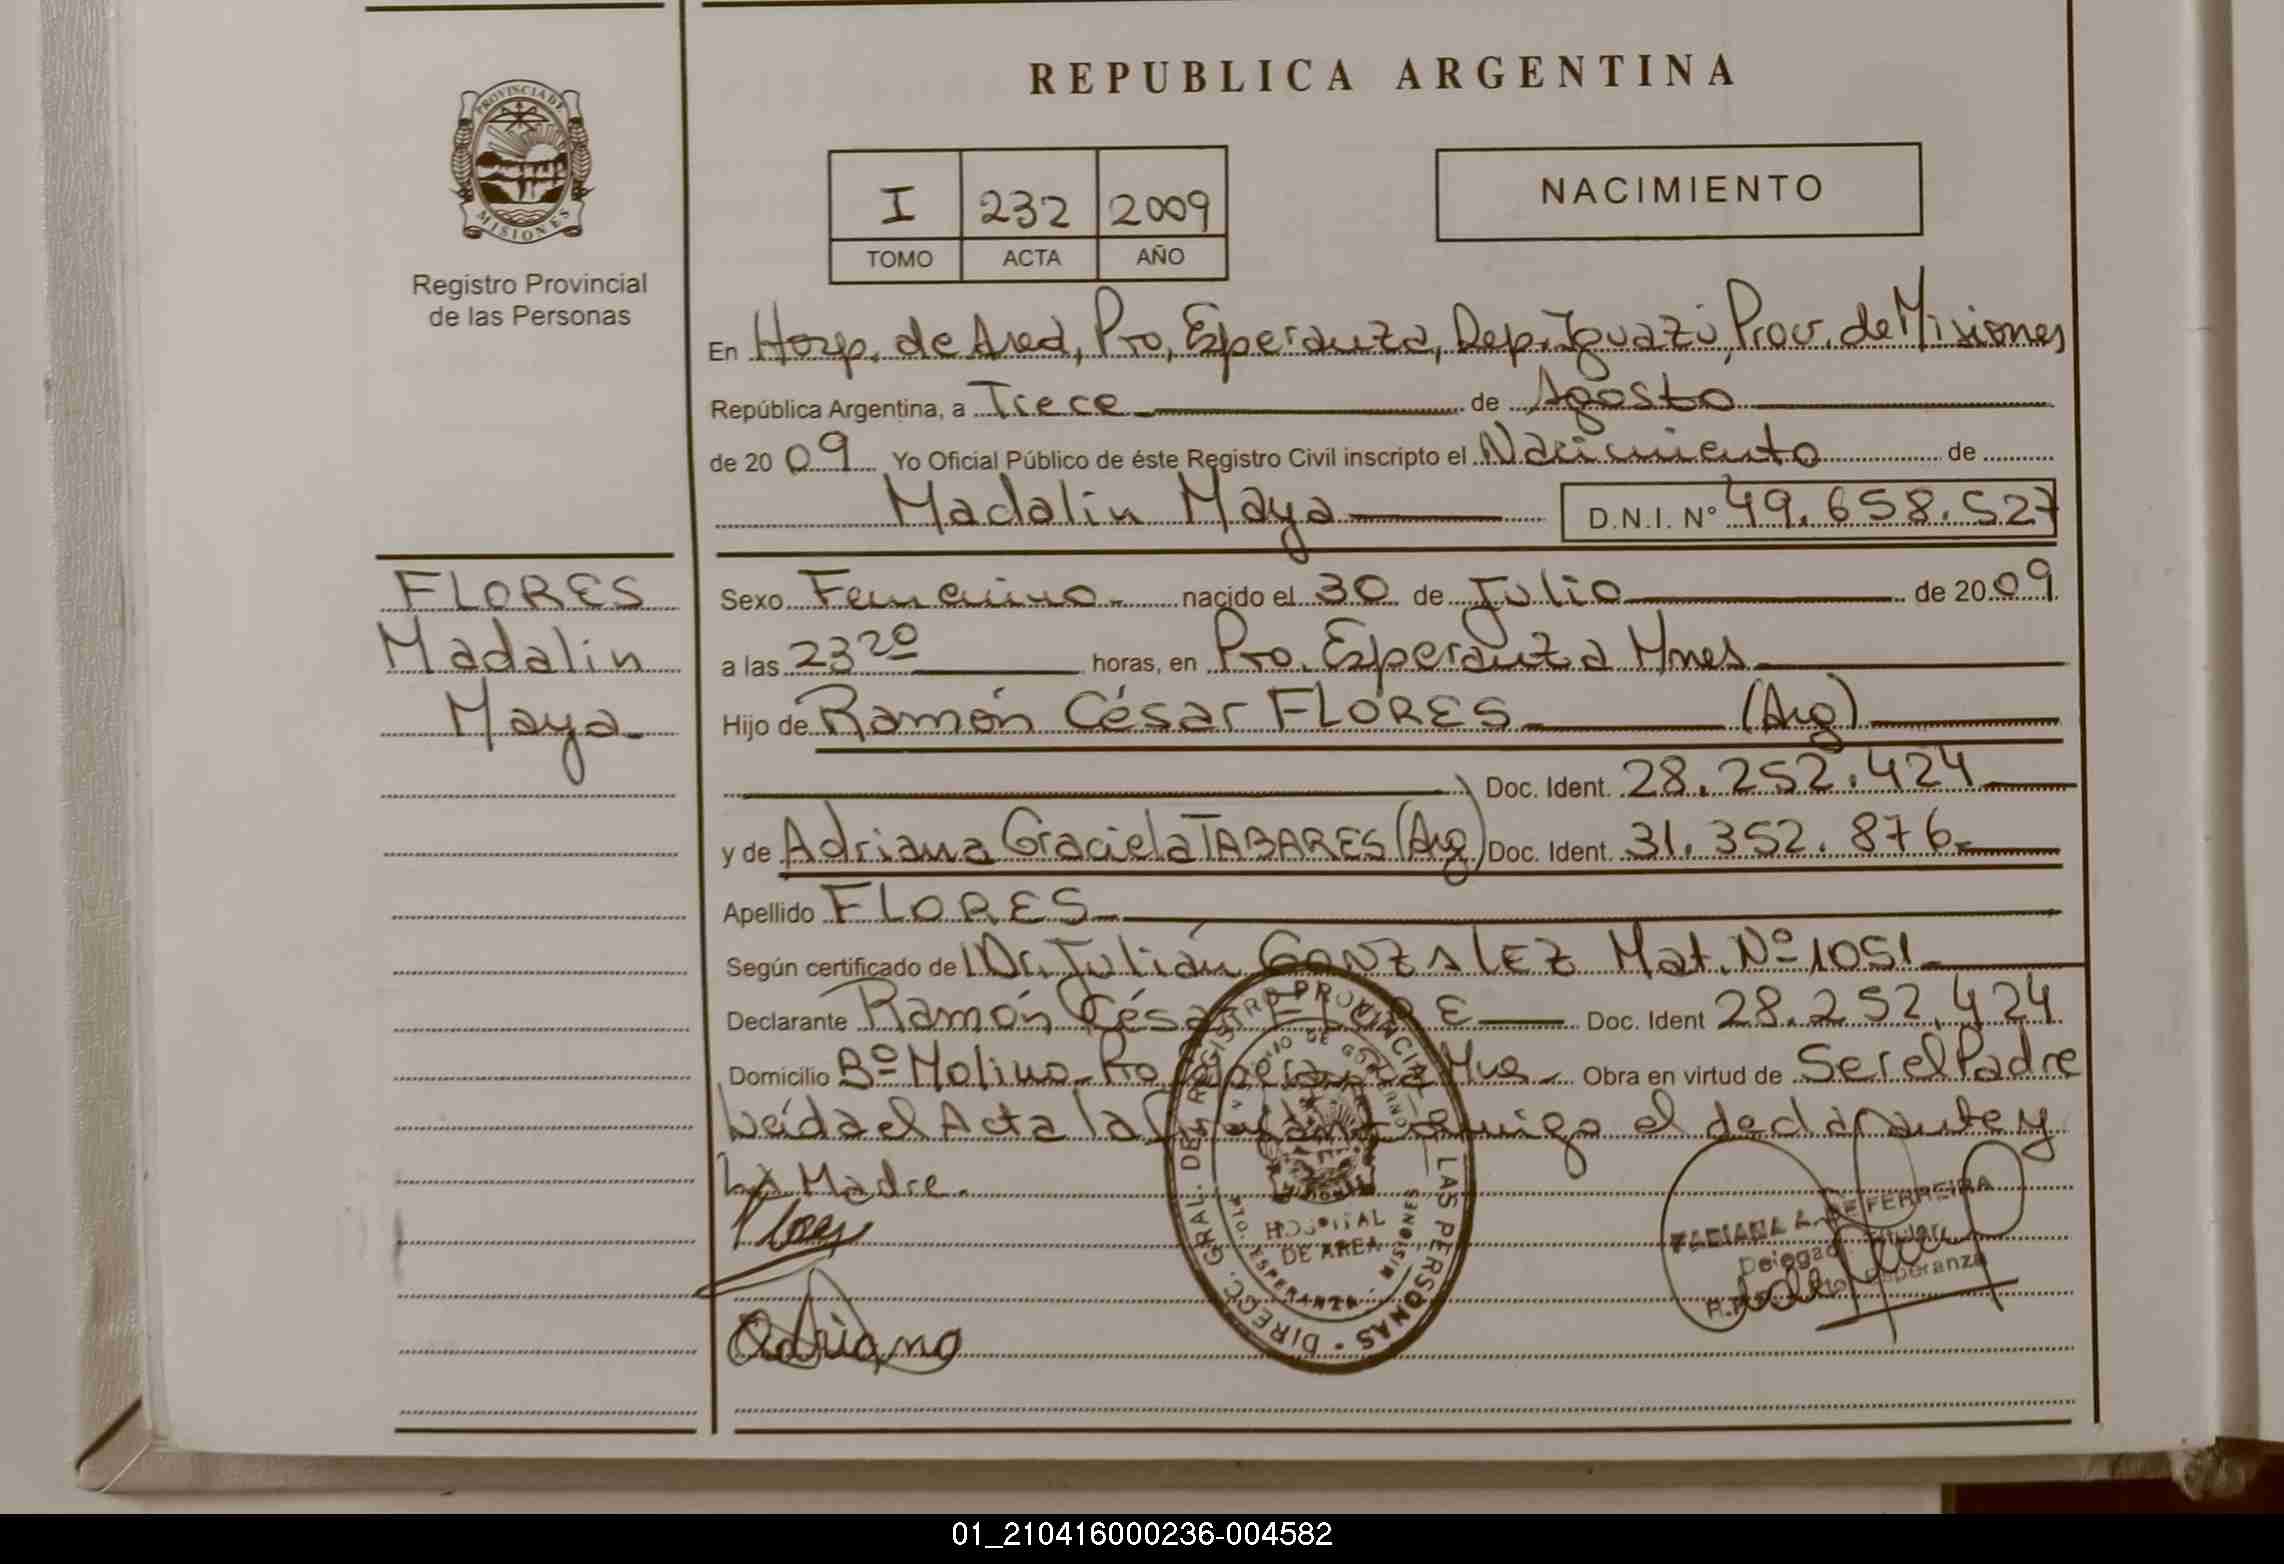 REPUBLICA ARGENTINA
PROVINCIA DE
MISIONES
Registro Provincial
de las Personas
I 232 2009
TOMO ACTA AÑO
NACIMIENTO
En Hosp. de Area, Pto, Esperanza, Dep. Iguazú, Prov. de Misiones
República Argentina, a Trece de Agosto
de 20 09 Yo Oficial Público de éste Registro Civil inscripto el Nacimiento de
Madalin Maya D.N.I. Nº 49.658.527
FLORES
Madalin
Maya
Sexo Femenino nacido el 30 de Julio de 20 09
a las 23 20 horas, en Pto. Esperanza Mnes
Hijo de Ramón César FLORES (Arg)
Doc. Ident. 28.252.424
y de Adriana Graciela TABARES (Arg) Doc. Ident. 31.352.876
Apellido FLORES
Según certificado de Dr. Julián GONZALEZ Mat. Nº 1051
Declarante Ramón César Doc. Ident 28.252.424
Domicilio Bº Molino Pto Esperanza Mnes Obra en virtud de Ser el Padre
Leída el Acta la firman conmigo el declarante y
La Madre.
Flores
Adriana
DIRECC. GRAL. DEL REGISTRO PROVINCIAL DE LAS PERSONAS
HOSPITAL
DE AREA
ESPERANZA - MISIONES
FABIANA A. DE FERREIRA
Delegada Titular
Esperanza
01_210416000236-004582